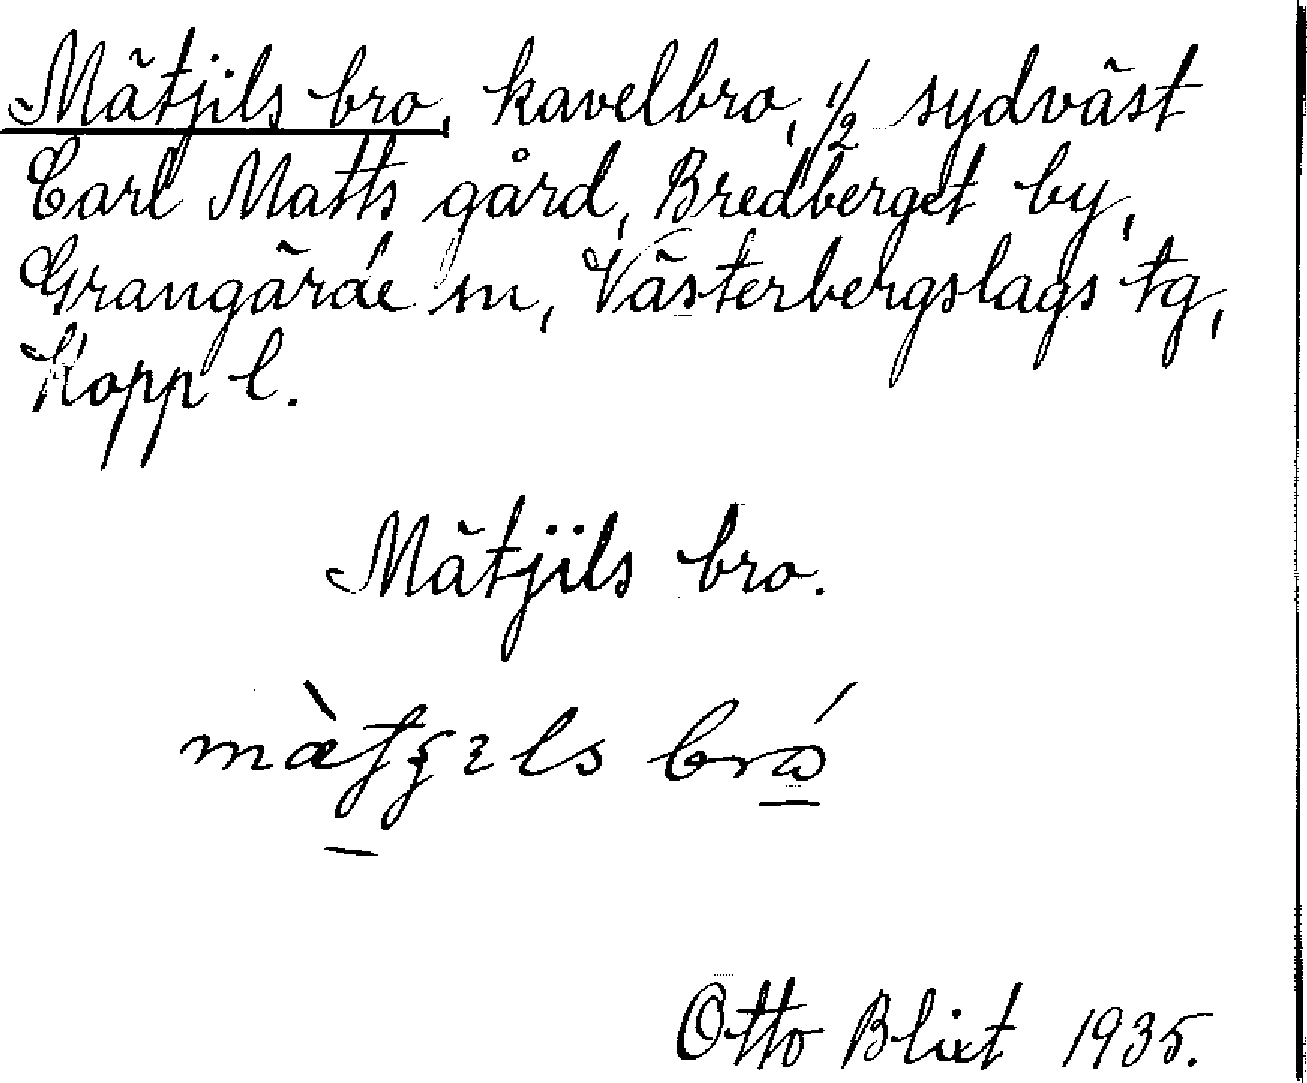 Mätjils bro, kavelbro, 1/2 sydväst
Carl Matts gård, Bredberget by,
Grangärde sn, Västerbergslags tg,
Kopp l.
Mätjils bro.
bró
Otto Blixt 1935.